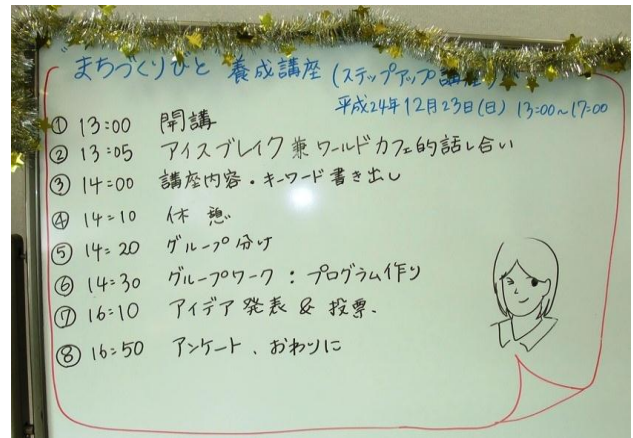 "まちづくりびと"養成講座(ステップアップ講座)
平成24年12月23日(日) 13:00~17:00
① 13:00 開講
② 13:05 アイスブレイク兼ワールドカフェ的話し合い
③ 14:00 講座内容・キーワード書き出し
④ 14:10 休憩
⑤ 14:20 グループ分け
⑥ 14:30 グループワーク:プログラム作り
⑦ 16:10 アイデア発表&投票.
⑧ 16:50 アンケート、おわりに